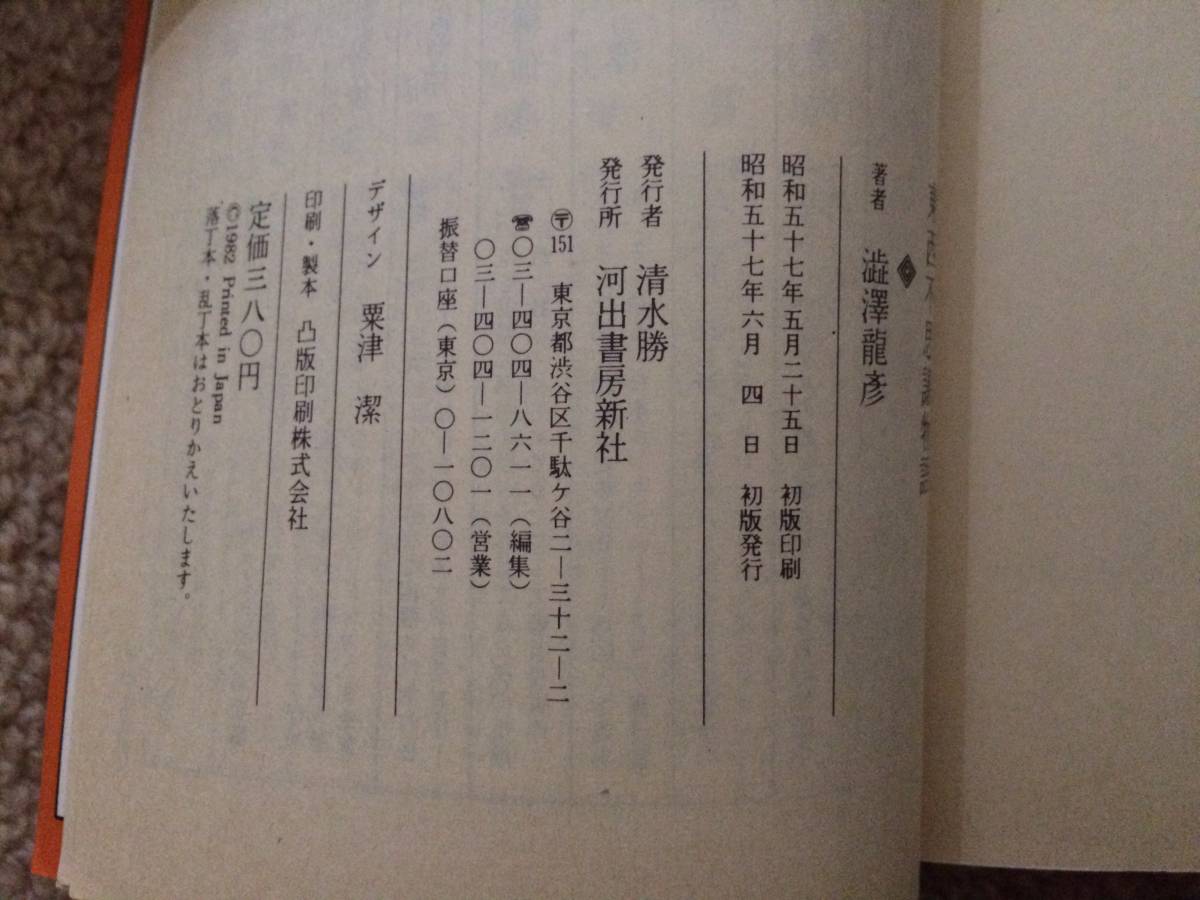 著者　澁澤龍彥
昭和五十七年五月二十五日　初版印刷
昭和五十七年六月　四　日　初版発行
発行者　清水勝
発行所　河出書房新社
〒151　東京都渋谷区千駄ケ谷二―三十二―二
☎〇三―四〇四―八六一一（編集）
〇三―四〇四―一二〇一（営業）
振替口座（東京）〇―一〇八〇二
デザイン　粟津　潔
印刷・製本　凸版印刷株式会社
定価三八〇円
©1982 Printed in Japan
落丁本・乱丁本はおとりかえいたします。